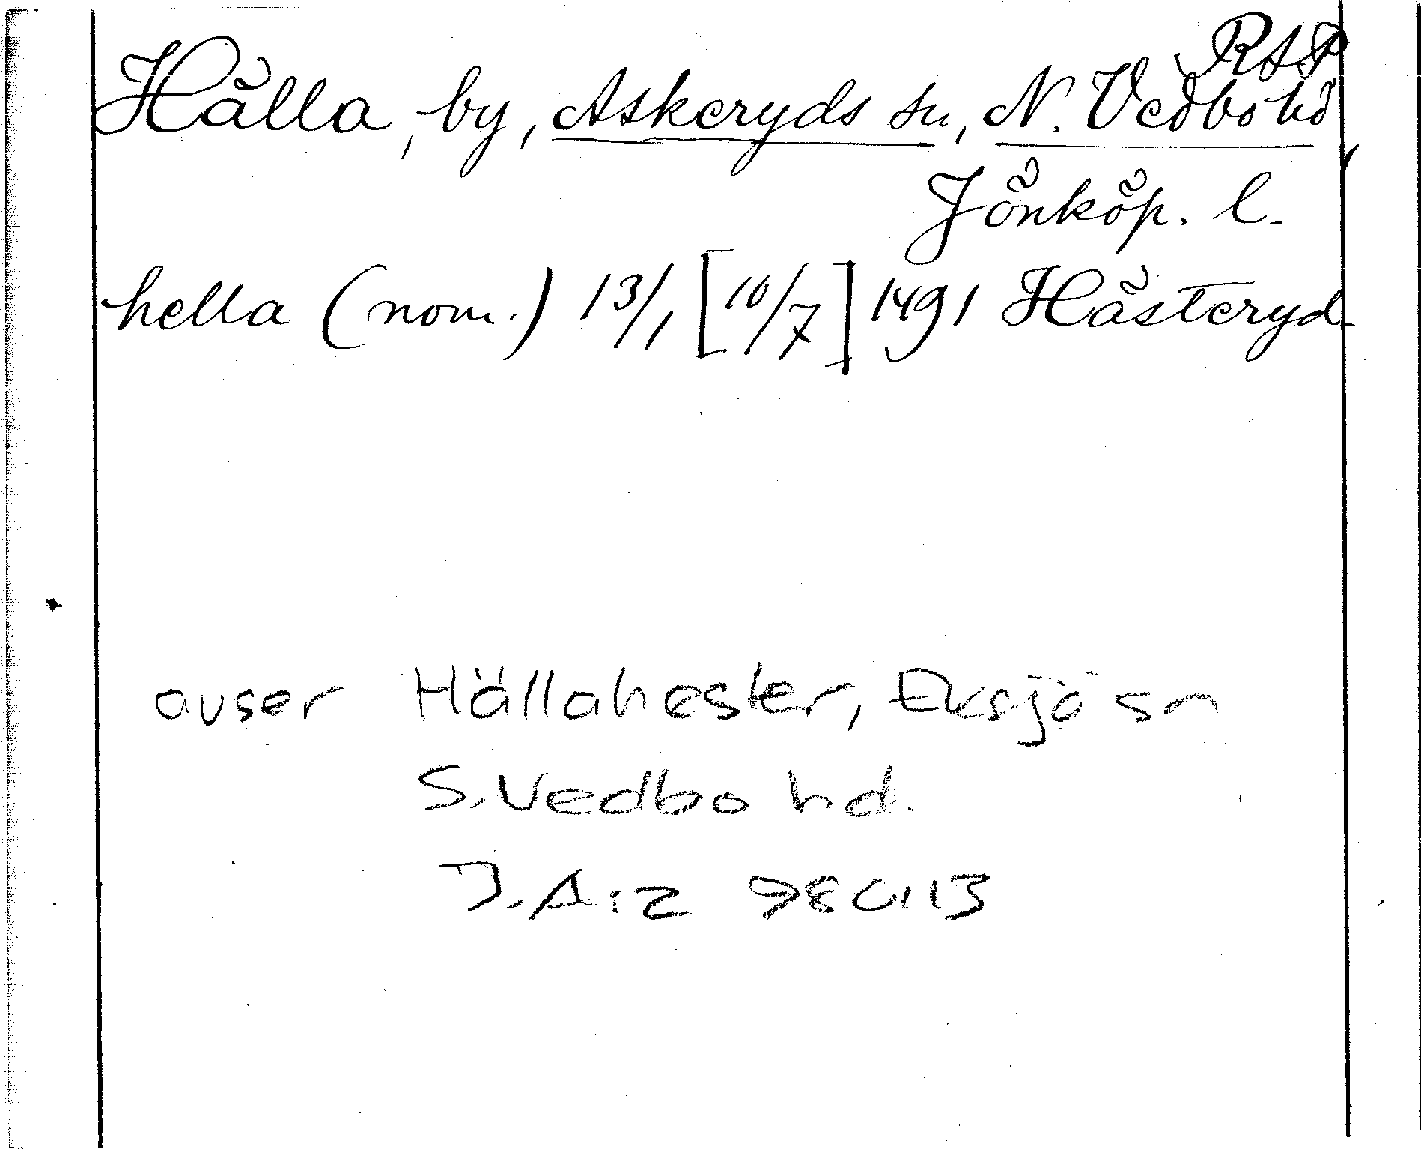 RAP
Hälla, by, Askeryds sn, N. Vedbo hd,
Jönköp. l.
hella (nom.) 13/1 [10/7] 1491 Hästeryd
avser Hällahester, Eksjö sn
S. Vedbo hd.
J.A:z 980113